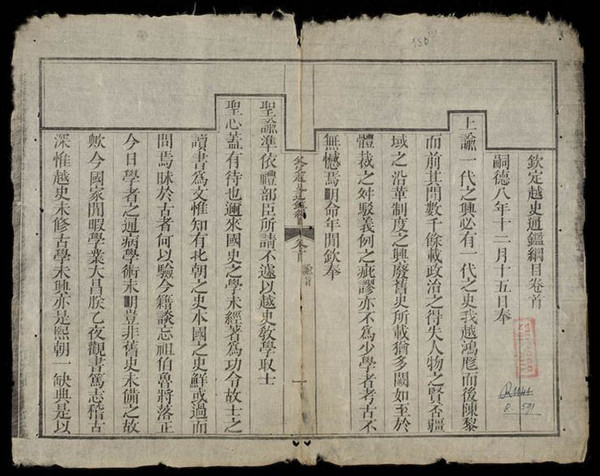 欽定越史通鑑綱目卷首
嗣德八年十二月十五日奉
上諭一代之興必有一代之史我越鴻厖而後陳黎
而前其間數千餘載政治之得失人物之賢否疆
域之沿革制度之興廢舊史所載猶多闕如至於
體裁之舛駁義例之疵謬亦不為少學者考古不
無憾焉明命年間欽奉
卷首
聖諭準依禮部臣所請不遽以越史教學取士
聖心蓋有待也邇來國史之學未經著為功令故士之
讀書為文惟知有北朝之史本國之史鮮或過而
問焉昧於古者何以驗今籍談忘祖伯魯將落正
今日學者之通病學術未明豈非舊史未備之故
歟今國家閒暇學業大昌朕乙夜觀書篤志稽古
深惟越史未修古學未興亦是熙朝一缺典是以